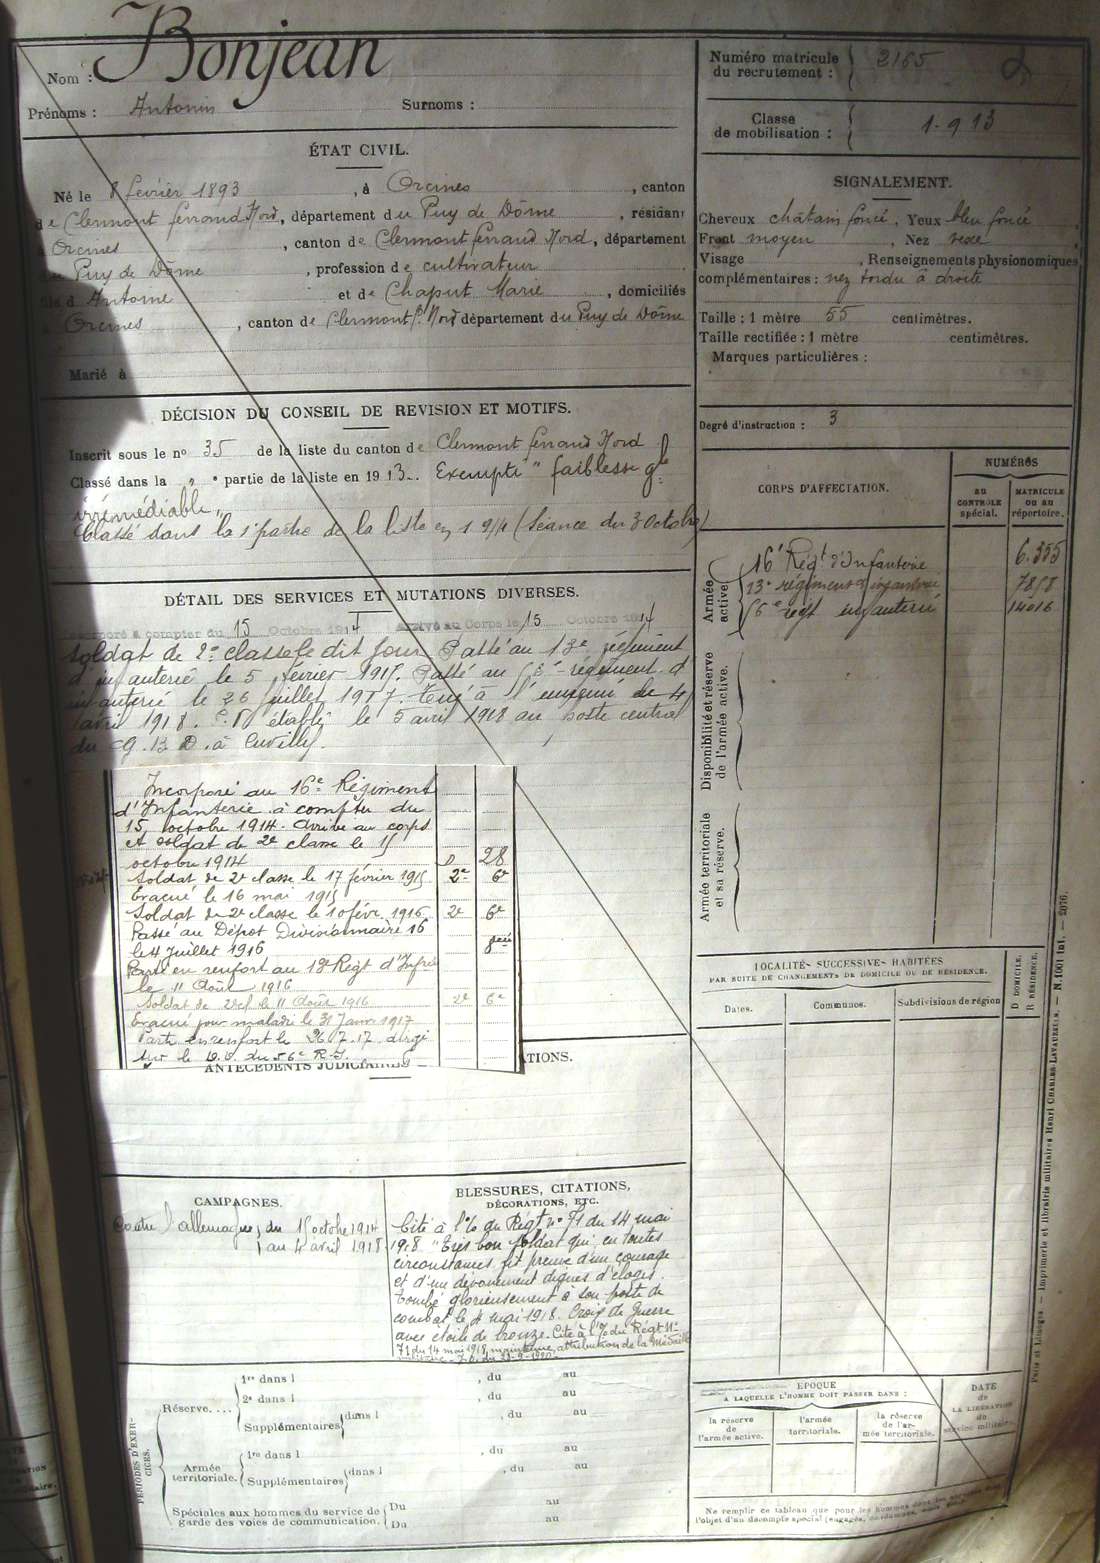 Nom : Bonjean
Prénoms : Antonin Surnoms :
ÉTAT CIVIL.
Né le 8 février 1893, à Orcines, canton
de Clermont ferrand Nord, département du Puy de Dôme, résidant
Orcines, canton de Clermont ferrand Nord, département
Puy de Dôme, profession de cultivateur
d'Antoine et de Chaput Marie, domiciliés
Orcines, canton de Clermont f. Nord département du Puy de Dôme
Marié à
DÉCISION DU CONSEIL DE REVISION ET MOTIFS.
Inscrit sous le n° 35 de la liste du canton de Clermont ferrand Nord
Classé dans la " partie de la liste en 1913. Exempté "faiblesse gle
irrémédiable"
Classé dans la 1e partie de la liste en 1914 (Séance du 3 Octobre)
DÉTAIL DES SERVICES ET MUTATIONS DIVERSES.
à compter du 15 Octobre 1914 Arrivé au Corps le 15 Octobre 1914
Soldat de 2e classe le dit jour. Passé au 13e régiment
d'infanterie le 5 février 1917. Passé au régiment d'
infanterie le 26 juillet 1917. Tué à l'ennemi le 4
avril 1918. établi le 5 avril 1918 au poste central
du G. B. D. à Cuvilly.
Incorporé au 16e Régiment
d'Infanterie à compter du
15 octobre 1914. Arrivé au corps
et soldat de 2e classe le 15
octobre 1914 28
Soldat de 2e classe le 17 février 1915 2e 6e
Évacué le 16 mai 1915
Soldat de 2e classe le 10 févr. 1916 2e 6e
Passé au Dépôt Divisionnaire 16
le 4 Juillet 1916
Passé en renfort au Regt d'Infrie
le 11 Août 1916
Soldat de 2e cl le 11 Août 1916 2e 6e
Évacué pour maladie le 31 Janv. 1917
Parti en renfort le 26.7.17. dirigé
sur le D.D. du 56e R.I.
ATIONS.
ANTÉCÉDENTS JUDICIAIRES
CAMPAGNES.
Contre l'allemagne, du 15 octobre 1914
au 4 avril 1918
BLESSURES, CITATIONS,
DÉCORATIONS, ETC.
Cité à l'% du Régt n° 71 du 14 mai
1918 "Très bon soldat qui en toutes
circonstances fit preuve d'un courage
et d'un dévouement dignes d'éloges.
Tombé glorieusement à son poste de
combat le 4 mai 1918. Croix de Guerre
avec étoile de bronze. Cité à l'% du Régt N°
71 du 14 mai 1918 attribution de la Médaille
militaire
PÉRIODES D'EXERCICES.
Réserve.... 1re dans l , du au
2e dans l , du au
Supplémentaires dans l , du au
Armée territoriale. 1re dans l , du au
Supplémentaires dans l , du au
Spéciales aux hommes du service de Du au
garde des voies de communication. Du au
Numéro matricule du recrutement : 2165
Classe de mobilisation : 1913
SIGNALEMENT.
Cheveux châtain foncé, Yeux bleu foncé
Front moyen, Nez
Visage , Renseignements physionomiques
complémentaires : nez tordu à droite
Taille : 1 mètre 55 centimètres.
Taille rectifiée : 1 mètre centimètres.
Marques particulières :
Degré d'instruction : 3
CORPS D'AFFECTATION.
NUMÉROS
AU CONTRÔLE spécial.
MATRICULE ou au répertoire.
Armée active.
16e Régt d'Infanterie 6.355
13e régiment d'infanterie
régt infanterie 14016
Disponibilité et réserve de l'armée active.
Armée territoriale et sa réserve.
LOCALITÉS SUCCESSIVES HABITÉES
PAR SUITE DE CHANGEMENTS DE DOMICILE OU DE RÉSIDENCE.
Dates. Communes. Subdivisions de région
D DOMICILE. R RÉSIDENCE.
ÉPOQUE
A LAQUELLE L'HOMME DOIT PASSER DANS :
la réserve de l'armée active.
l'armée territoriale.
la réserve de l'armée territoriale.
DATE de LA LIBÉRATION du service militaire.
Ne remplir ce tableau que pour les hommes dont les services
l'objet d'un décompte spécial (engagés,
Paris et Limoges. — Imprimerie et librairie militaires Henri CHARLES-LAVAUZELLE. — N. 1001 int. — 2076.